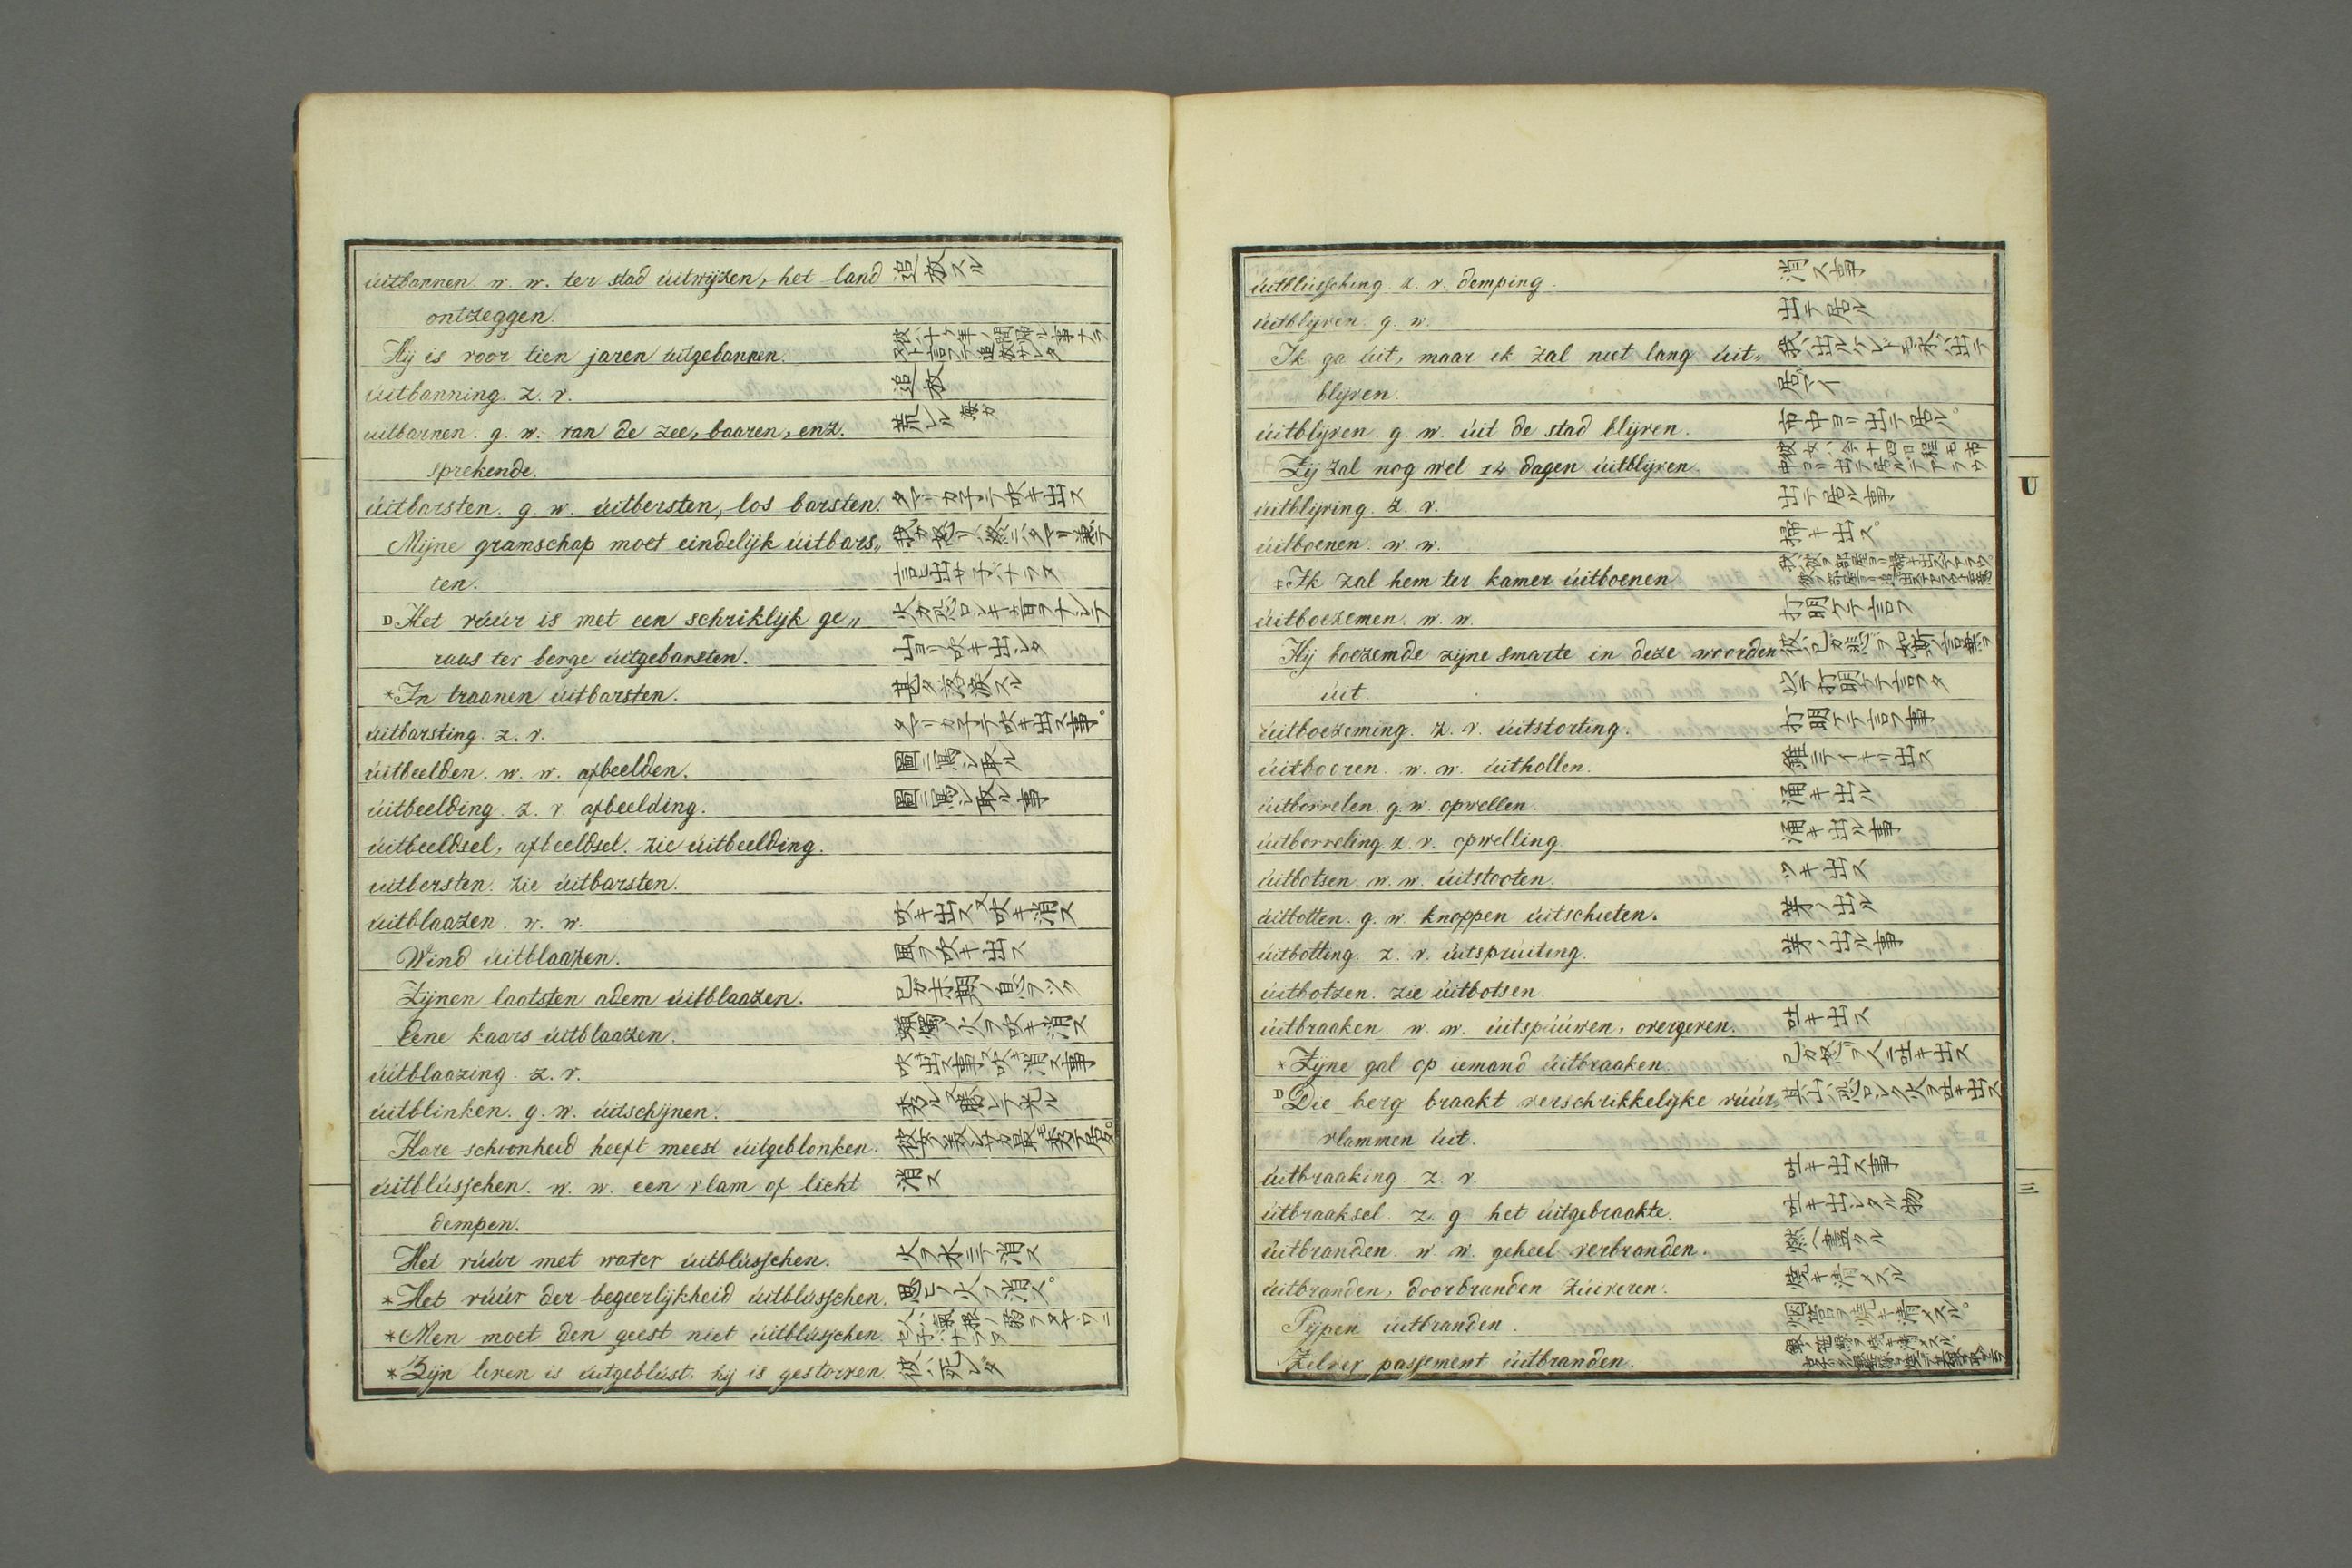 uitbannen. w. w. ter stad uitwijzen, het land 追放スル
ontzeggen.
Hij is voor tien jaren uitgebannen.
uitbanning. z. v. 追放
uitbarnen. g. w. van de zee, baaren, enz. 荒レル 海ガ
sprekende.
uitbarsten. g. w. uitbersten, los barsten. タマリカ子テ吹キ出ス
Mijne gramschap moet eindelijk uitbars„
ten.
D Het vúúr is met een schriklijk ge„ 火ガ恐ロシキ音ヲナシテ
raas ter berge uitgebarsten. 山ヨリ吹キ出シタ
*In traanen uitbarsten. 甚タ落涙スル
uitbarsting. z. v. タマリカ子テ吹キ出ス事。
uitbeelden. w. w. afbeelden. 圖ニ寫シ取ル
uitbeelding. z. v. afbeelding. 圖ニ寫シ取ル事
uitbeeldsel, afbeeldsel. zie uitbeelding.
uitbersten. zie uitbarsten.
uitblaazen. w. w. 吹キ出ス又吹キ消ス
Wind uitblaazen. 風ヲ吹キ出ス
Zijnen laatsten adem uitblaazen.
Eene kaars uitblaazen. 蠟燭ノ火ヲ吹キ消ス
uitblaazing. z. v. 吹キ出ス事又吹キ消ス事
uitblinken. g. w. uitschijnen. 秀ル又勝レテ光ル
Hare schoonheid heeft meest uitgeblonken.
uitblusschen. w. w. een vlam of licht 消ス
dempen.
Het vúúr met water uitblusschen. 火ヲ水ニテ消ス
*Het vúúr der begeerlijkheid uitblusschen.
*Men moet den geest niet uitblusschen
*Zijn leven is uitgeblust. hij is gestorven. 彼ハ死シタ
uitblussching. z. v. demping. 消ス事
uitblyven. g. w. 出テ居ル
Ik ga uit, maar ik zal niet lang uit„
blyven. 居マイ
uitblijven. g. w. uit de stad blijven. 市中ヨリ出テ居ル。
Zij zal nog wel 14 dagen uitblijven. 彼女ハ今十四日程モ市中ヨリ出テ居ルデアラウ
uitblijving. z. v. 出テ居ル事
uitboenen. w. w. 掃キ出ス。
*Ik zal hem ter kamer uitboenen
uitboezemen. w. w. 打明ケテ言フ
Hij boezemde zijne smarte in deze woorden
uit. 打明ケテ言フタ
uitboezeming. z. v. uitstorting. 打明ケテ言フ事
uitbooren. w. w. uithollen. 錐ニテイキリ出ス
uitborrelen. g. w. opwellen. 涌キ出ル
uitborreling. z. v. opwelling 涌キ出ル事
uitbotsen. w. w. uitstooten. ツキ出ス
uitbotten. g. w. knoppen uitschieten. 芽ノ出ル
uitbotting. z. v. uitspruiting. 芽ノ出ル事
uitbotzen. zie uitbotsen
uitbraaken. w. w. uitspúúwen, overgeven. 吐キ出ス
*Zijne gal op iemand uitbraaken. 己ガ怒ヲ人ニ吐キ出ス
D Die berg braakt verschrikkelijke vúúr„ 其山ハ恐ロシク火ヲ吐キ出ス
vlammen uit.
uitbraaking. z. v. 吐キ出ス事
uitbraaksel. z. g. het uitgebraakte. 吐キ出シタル物
uitbranden. w. w. geheel verbranden. 燃ヘ盡クル
uitbranden, doorbranden zuiveren. 燒キ清メル
Pijpen uitbranden. 烟管ヲ燒キ清メル。
Zilver passement uitbranden.
U
三